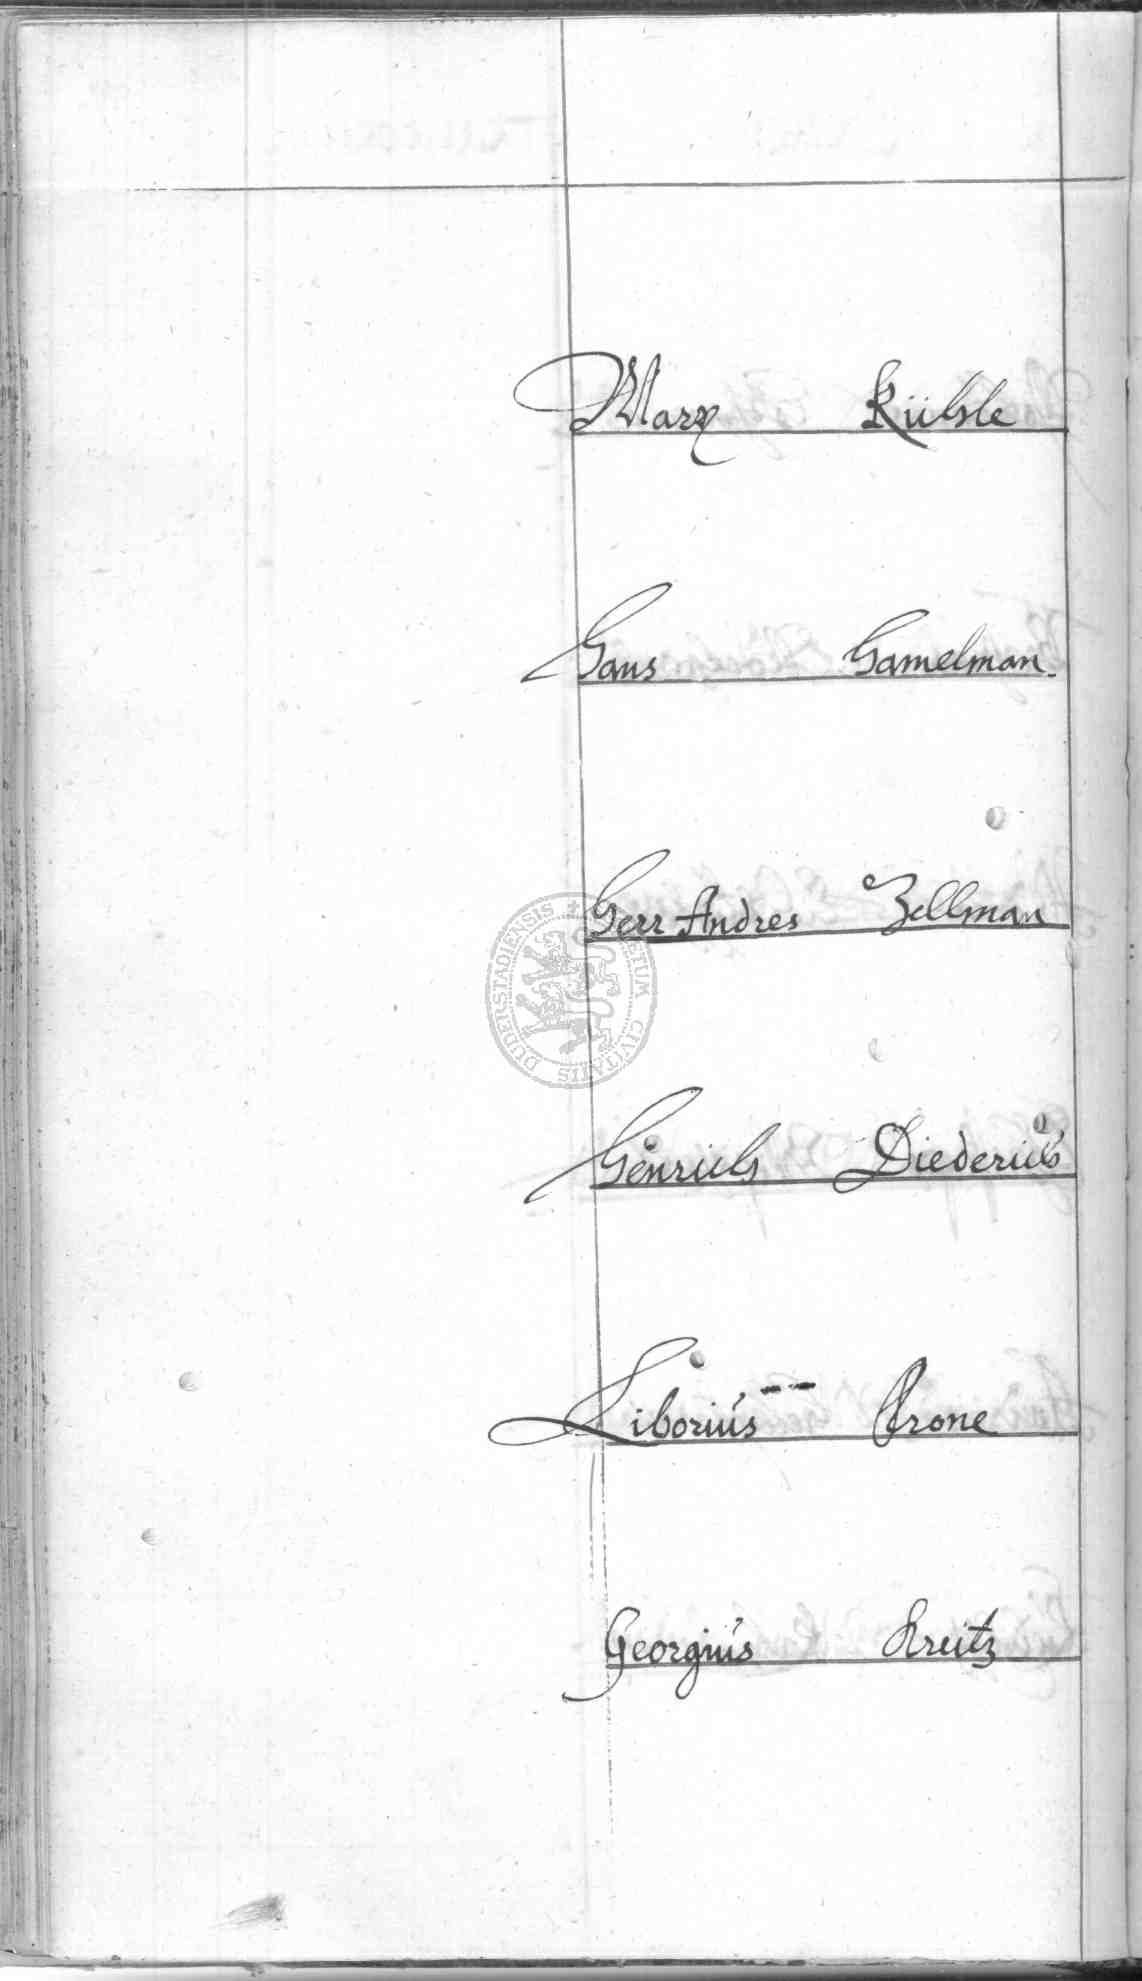 Marx Kühle
Hans Hamelman
Herr Andres Zellman
CIVITATIS DUDERSTADIENSIS
Henrich Diederich
Liborius Crone
Georgius Kreitz